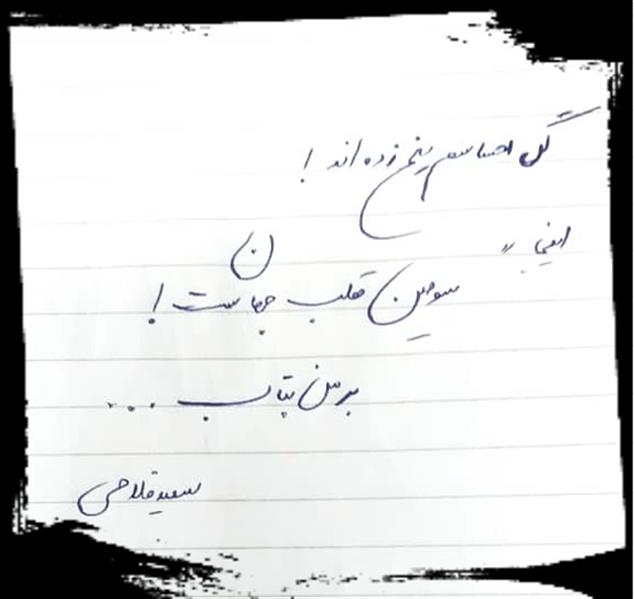 گل احساسم یخ زده اند !
اینجا
سومین قطب جهان ست !
بر من بتاب ...
سعید فلاحی